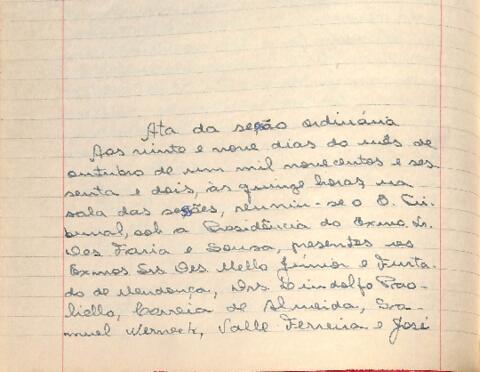 Ata da seção ordinária
Aos vinte e nove dias do mês de
outubro de um mil novecentos e ses
senta e dois, às quinze horas na
sala das seções, reuniu-se o E. Tri
bunal, sob a Presidência do Exmo. Sr.
Des. Faria e Sousa, presentes os
Exmos Srs. Des. Mello Júnior e Furta
do de Mendonça, Drs. Lindolfo Pao-
liello, Correia de Almeida, Sa
muel Werneck, Valle Ferreira e José